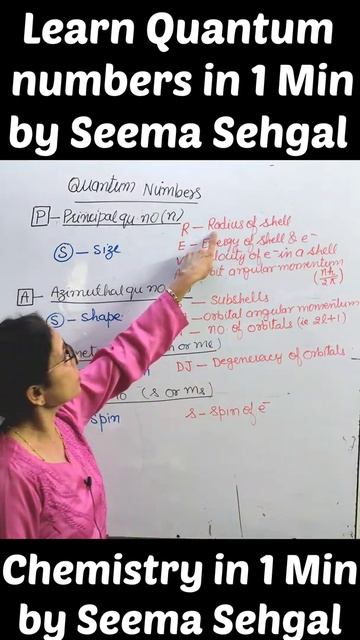 Learn Quantum
numbers in 1 Min
by Seema Sehgal
Quantum Numbers
P - Principal qu no (n)
R - Radius of shell
E - Energy of shell & e-
S - Size
of e- in a shell
angular momentum
(nh/2π)
A - Azimuthal qu no
- Subshells
S - Shape
- orbital angular momentum
- no of orbitals (ie 2l+1)
or me)
DJ - Degeneracy of orbitals
(s or ms)
spin
s - spin of e-
Chemistry in 1 Min
by Seema Sehgal